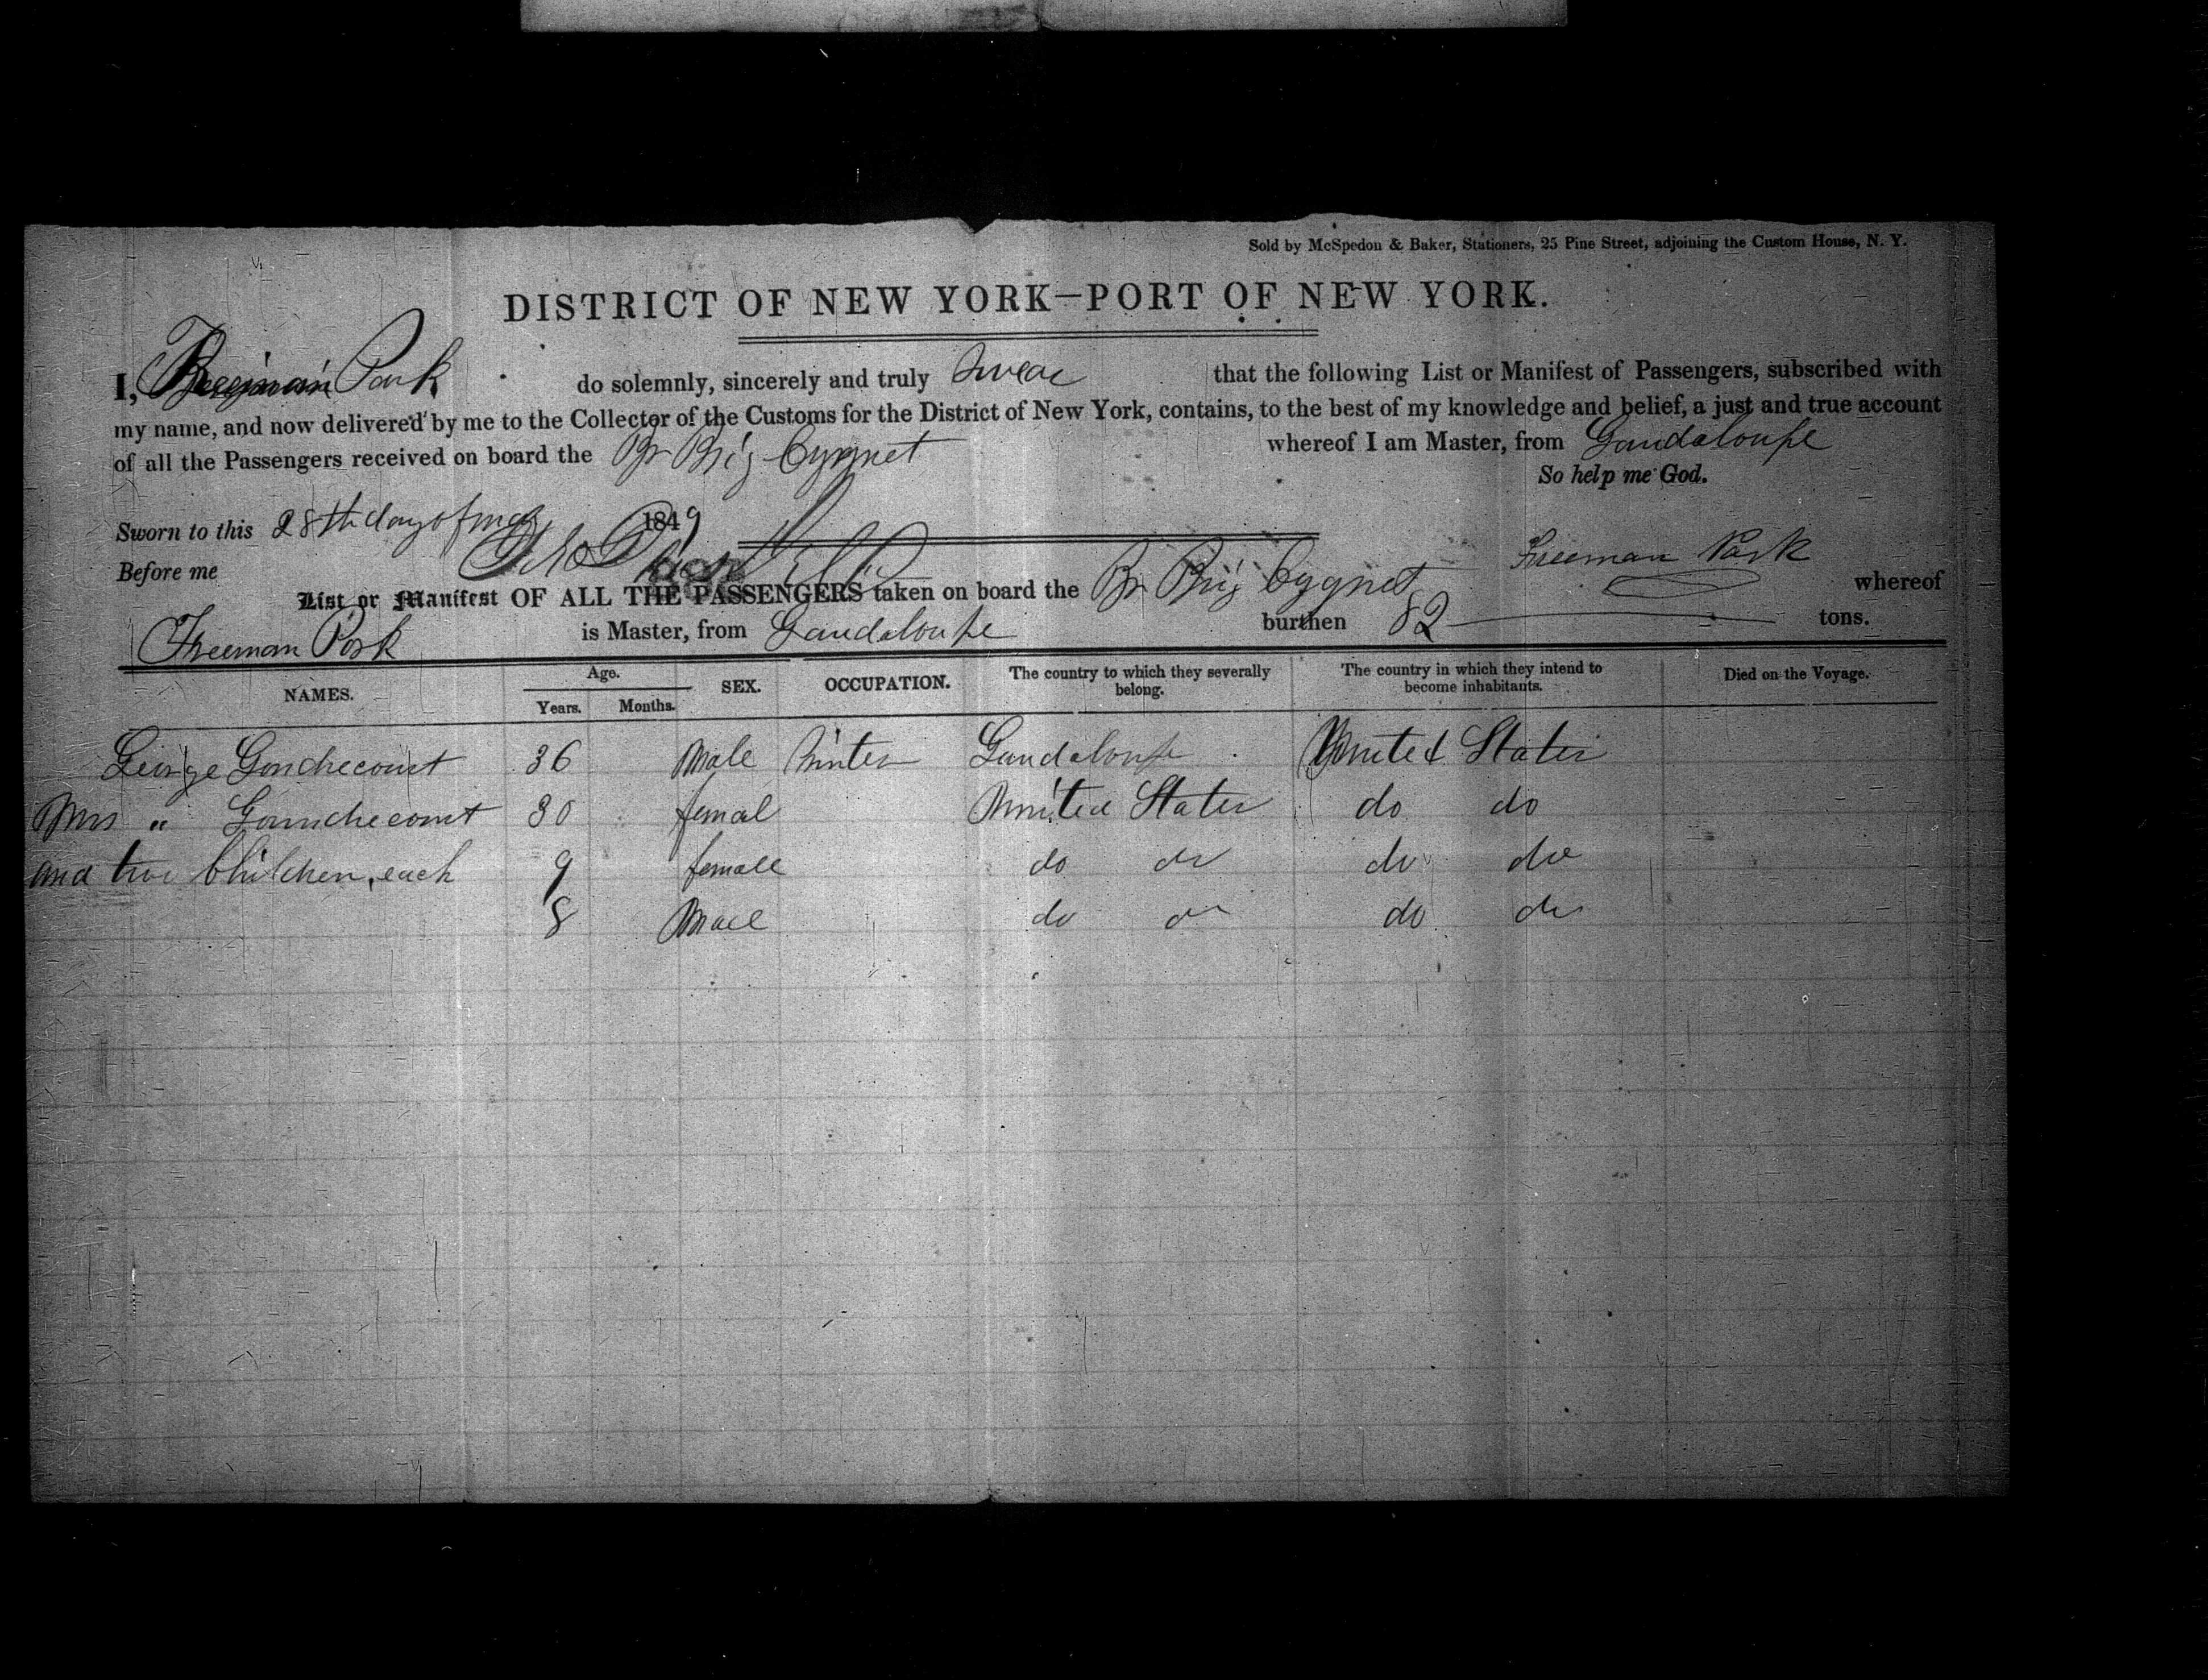 Sold by McSpedon & Baker, Stationers, 25 Pine Street, adjoining the Custom House, N. Y.
DISTRICT OF NEW YORK—PORT OF NEW YORK.
I, Park do solemnly, sincerely and truly swear that the following List or Manifest of Passengers, subscribed with
my name, and now delivered by me to the Collector of the Customs for the District of New York, contains, to the best of my knowledge and belief, a just and true account
of all the Passengers received on board the Br Brig Cygnet whereof I am Master, from Gaudaloupe
So help me God.
Sworn to this 28th day of 1849
Before me
Freeman Park
List or Manifest OF ALL THE PASSENGERS taken on board the Br Brig Cygnet whereof
Freeman Park is Master, from Gaudaloupe burthen 82 tons.
NAMES. Age. Years. Months. SEX. OCCUPATION. The country to which they severally belong. The country in which they intend to become inhabitants. Died on the Voyage.
George 36 Male Gaudaloupe United States
Mrs " 30 femal United States do do
and two Children, each 9 female do do do do
8 Male do do do do